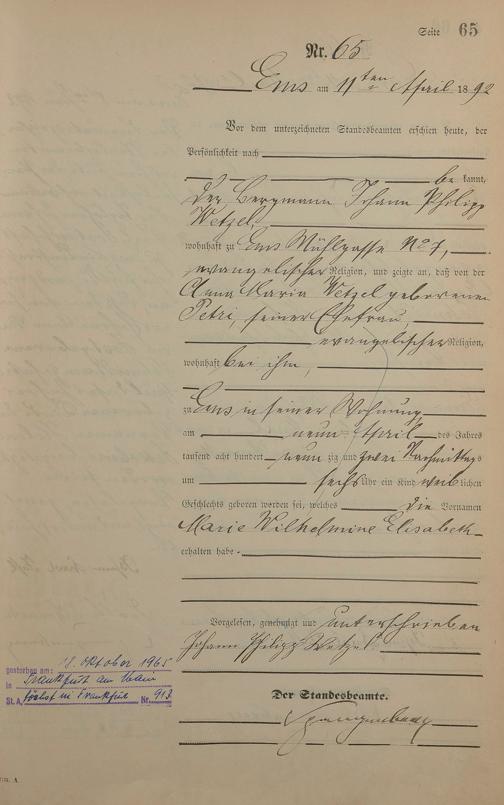 Seite 65
Nr. 65
Ems am 11ten April 1892
Vor dem unterzeichneten Standesbeamten erschien heute, der
Persönlichkeit nach
bekannt,
der Bergmann Johann Philipp
Wetzel,
wohnhaft zu Ems Mühlgasse No 7,
evangelischer Religion, und zeigte an, daß von der
Anna Maria Wetzel geborenen
Petri, seiner Ehefrau,
evangelischer Religion,
wohnhaft bei ihm,
zu Ems in seiner Wohnung
am neun April des Jahres
tausend acht hundert neunzig und zwei Nachmittags
um sechs Uhr ein Kind weiblichen
Geschlechts geboren worden sei, welches die Vornamen
Marie Wilhelmine Elisabeth
erhalten habe.
Vorgelesen, genehmigt und unterschrieben
Johann Philipp Wetzel
gestorben am: 18. Oktober 1965
in Frankfurt am Main
St. A. Höchst in Frankfurt Nr. 918
Der Standesbeamte.
Spangenberg